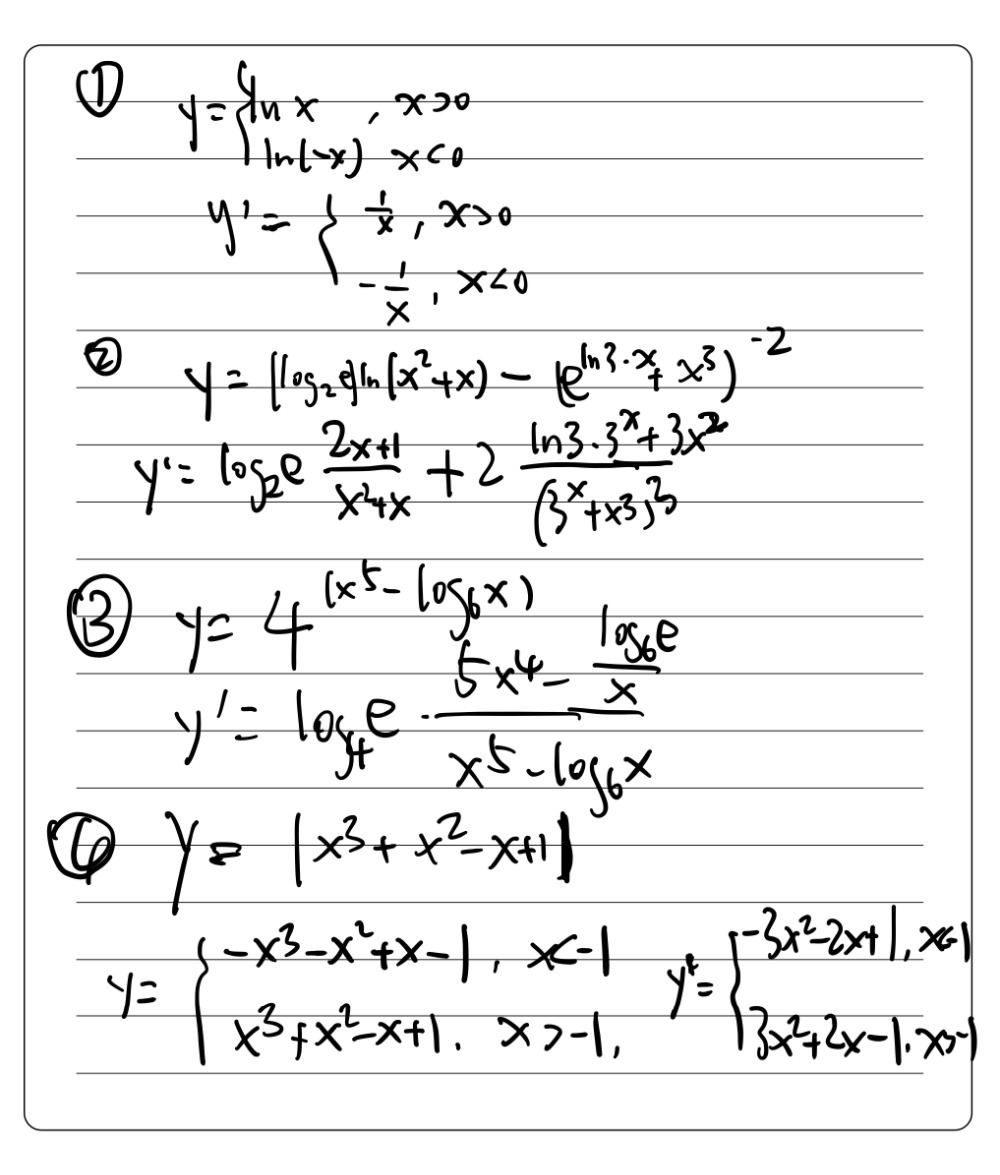 ① y = { ln x , x>0
ln(-x) x<0
y' = { 1/x , x>0
-1/x , x<0
② y = (log₂e)ln(x²+x) - (e^(ln3·x) + x³)^-2
y' = log₂e (2x+1)/(x²+x) + 2 (ln3·3^x + 3x²)/(3^x+x³)³
③ y = 4^(x⁵ - log₆x)
y' = log₄e · (5x⁴ - (log₆e)/x)/(x⁵ - log₆x)
④ y = |x³ + x² - x+1|
y = { -x³-x²+x-1, x<-1
x³+x²-x+1. x>-1,
y' = { -3x²-2x+1, x<-1
3x²+2x-1. x>-1